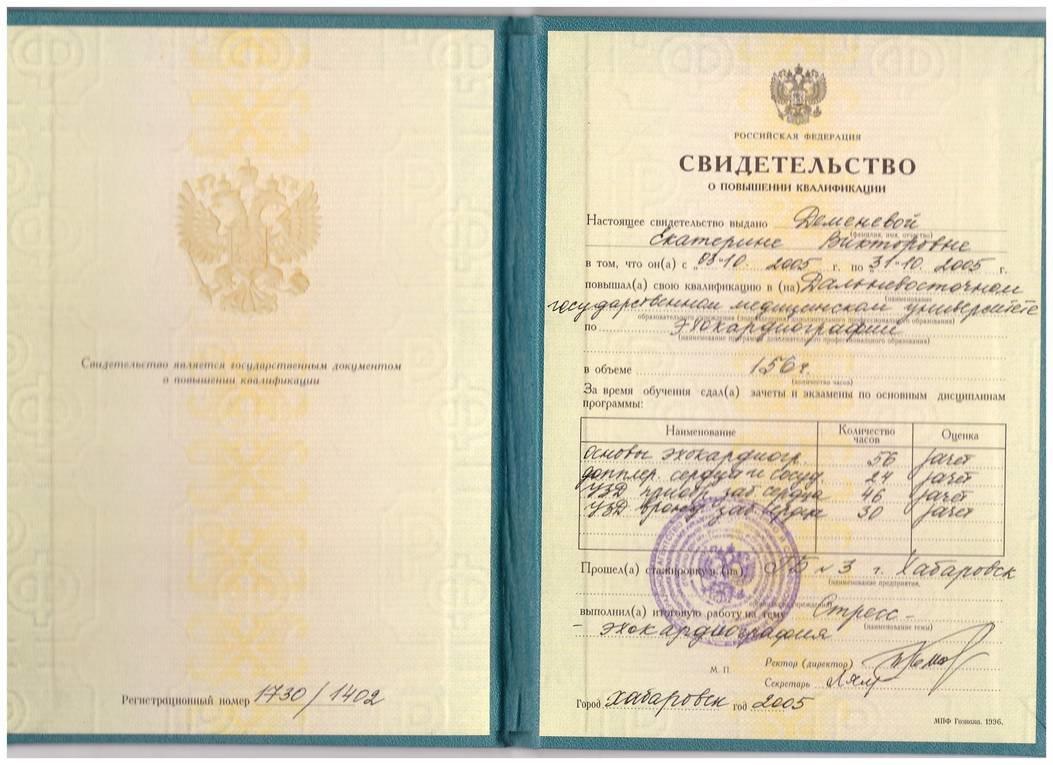 Свидетельство является государственным документом
о повышении квалификации
Регистрационный номер 1730/1402
РОССИЙСКАЯ ФЕДЕРАЦИЯ
СВИДЕТЕЛЬСТВО
О ПОВЫШЕНИИ КВАЛИФИКАЦИИ
Настоящее свидетельство выдано Деменевой
(фамилия, имя, отчество)
Екатерине Викторовне
в том, что он(а) с „03“ 10. 2005 г. по „31“ 10. 2005 г.
повышал(а) свою квалификацию в (на) Дальневосточном
(наименование
государственном медицинском университете
образовательного учреждения (подразделения) дополнительного профессионального образования)
по Эхокардиографии
(наименование программы дополнительного профессионального образования)
в объеме 156 ч.
(количество часов)
За время обучения сдал(а) зачеты и экзамены по основным дисциплинам
программы:
Наименование Количество часов Оценка
основы эхокардиогр. 56 зачет
допплер. сердца и сосуд 24 зачет
УЗД приобр. заб. сердца 46 зачет
УЗД врожд. заб. сердца 30 зачет
Прошел(а) стажировку в (на) ГБ № 3 г. Хабаровск
(наименование предприятия,
организации, учреждения)
выполнил(а) итоговую работу на тему Стресс-
(наименование темы)
- эхокардиография
М. П.
Ректор (директор)
Секретарь
Город Хабаровск год 2005
МПФ Гознака. 1996.